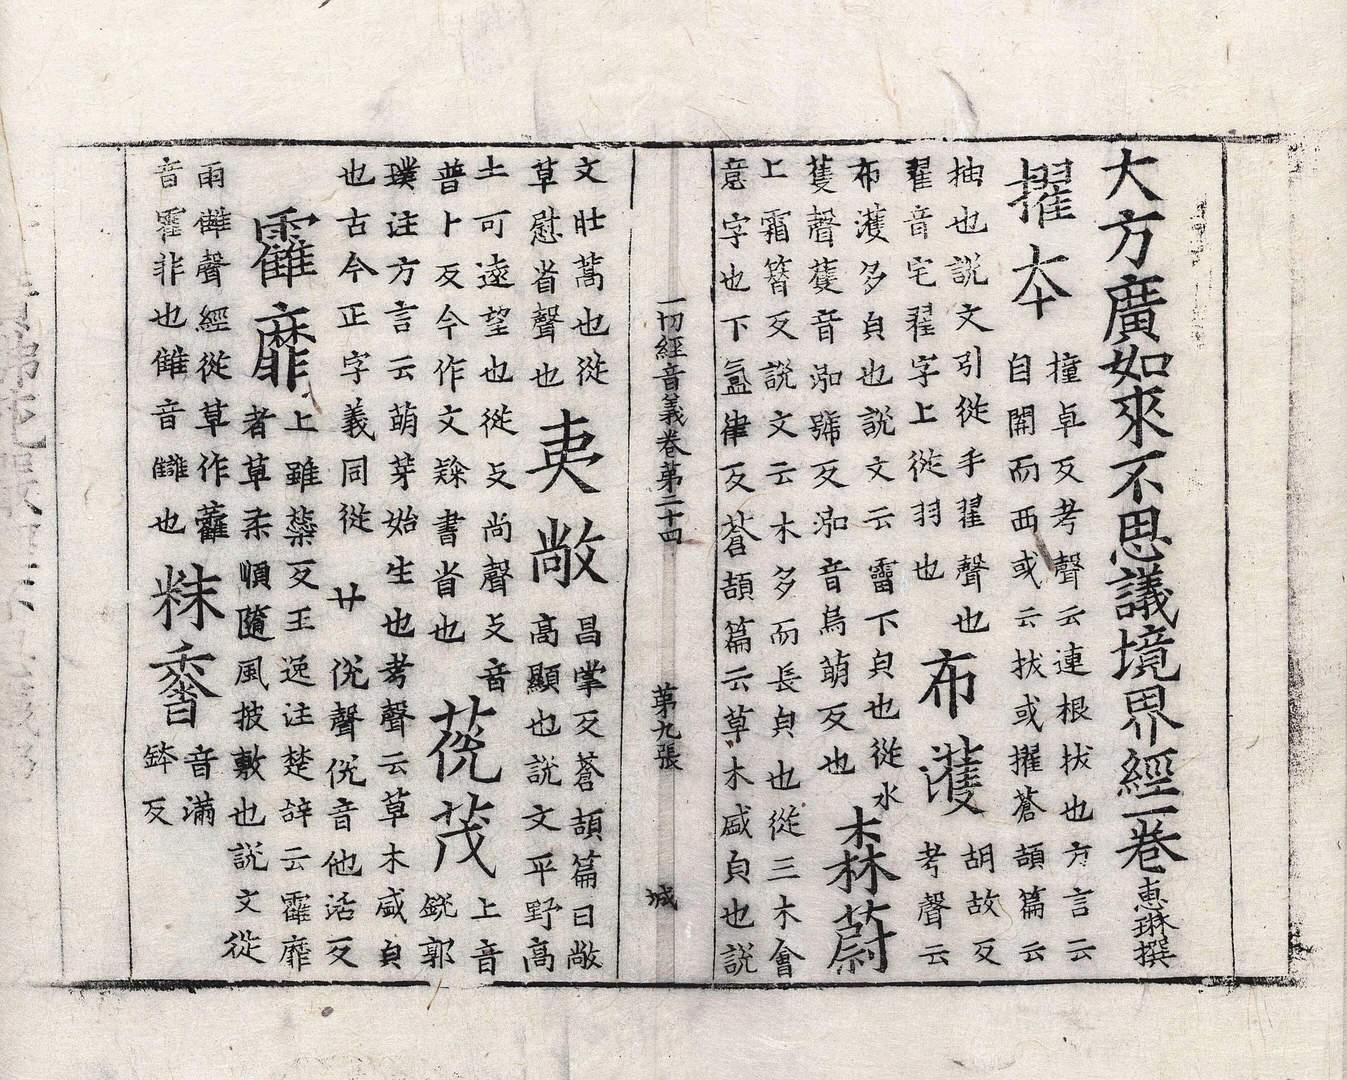 大方廣如來不思議境界經一卷 惠琳撰
擢本 撞卓反考聲云連根拔也方言云
自關而西或云拔或擢蒼頡篇云
抽也說文引從手翟聲也
翟音宅翟字上從羽也
布濩 胡故反
考聲云
布濩多皃也說文云霤下皃也從水
蒦聲蒦音泓虢反泓音烏萌反也
森蔚
上霜簪反說文云木多而長皃也從三木會
意字也下氳律反蒼頡篇云草木盛皃也說
一切經音義卷第二十四 第九張 城
文壯蒿也從
草慰省聲也
夷敞 昌掌反蒼頡篇曰敞
高顯也說文平野高
土可遠望也從攴尚聲攴音
普卜反今作文隸書省也
莌茂 上音
銳郭
璞注方言云萌芽始生也考聲云草木盛皃
也古今正字義同從廾侻聲侻音他活反
靃靡 上雖蘂反王逸注楚辭云靃靡
者草柔順隨風披敷也說文從
雨雔聲經從草作藿
音霍非也雔音讎也
粖香 音滿
鉢反